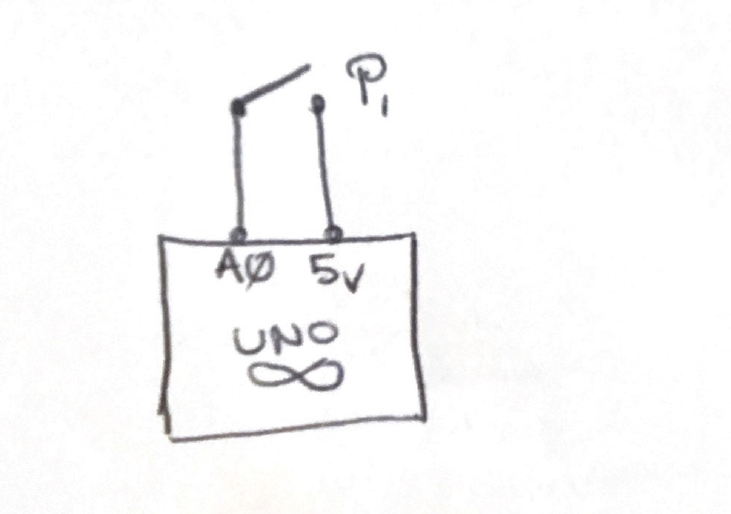 P1
AØ 5V
UNO
∞